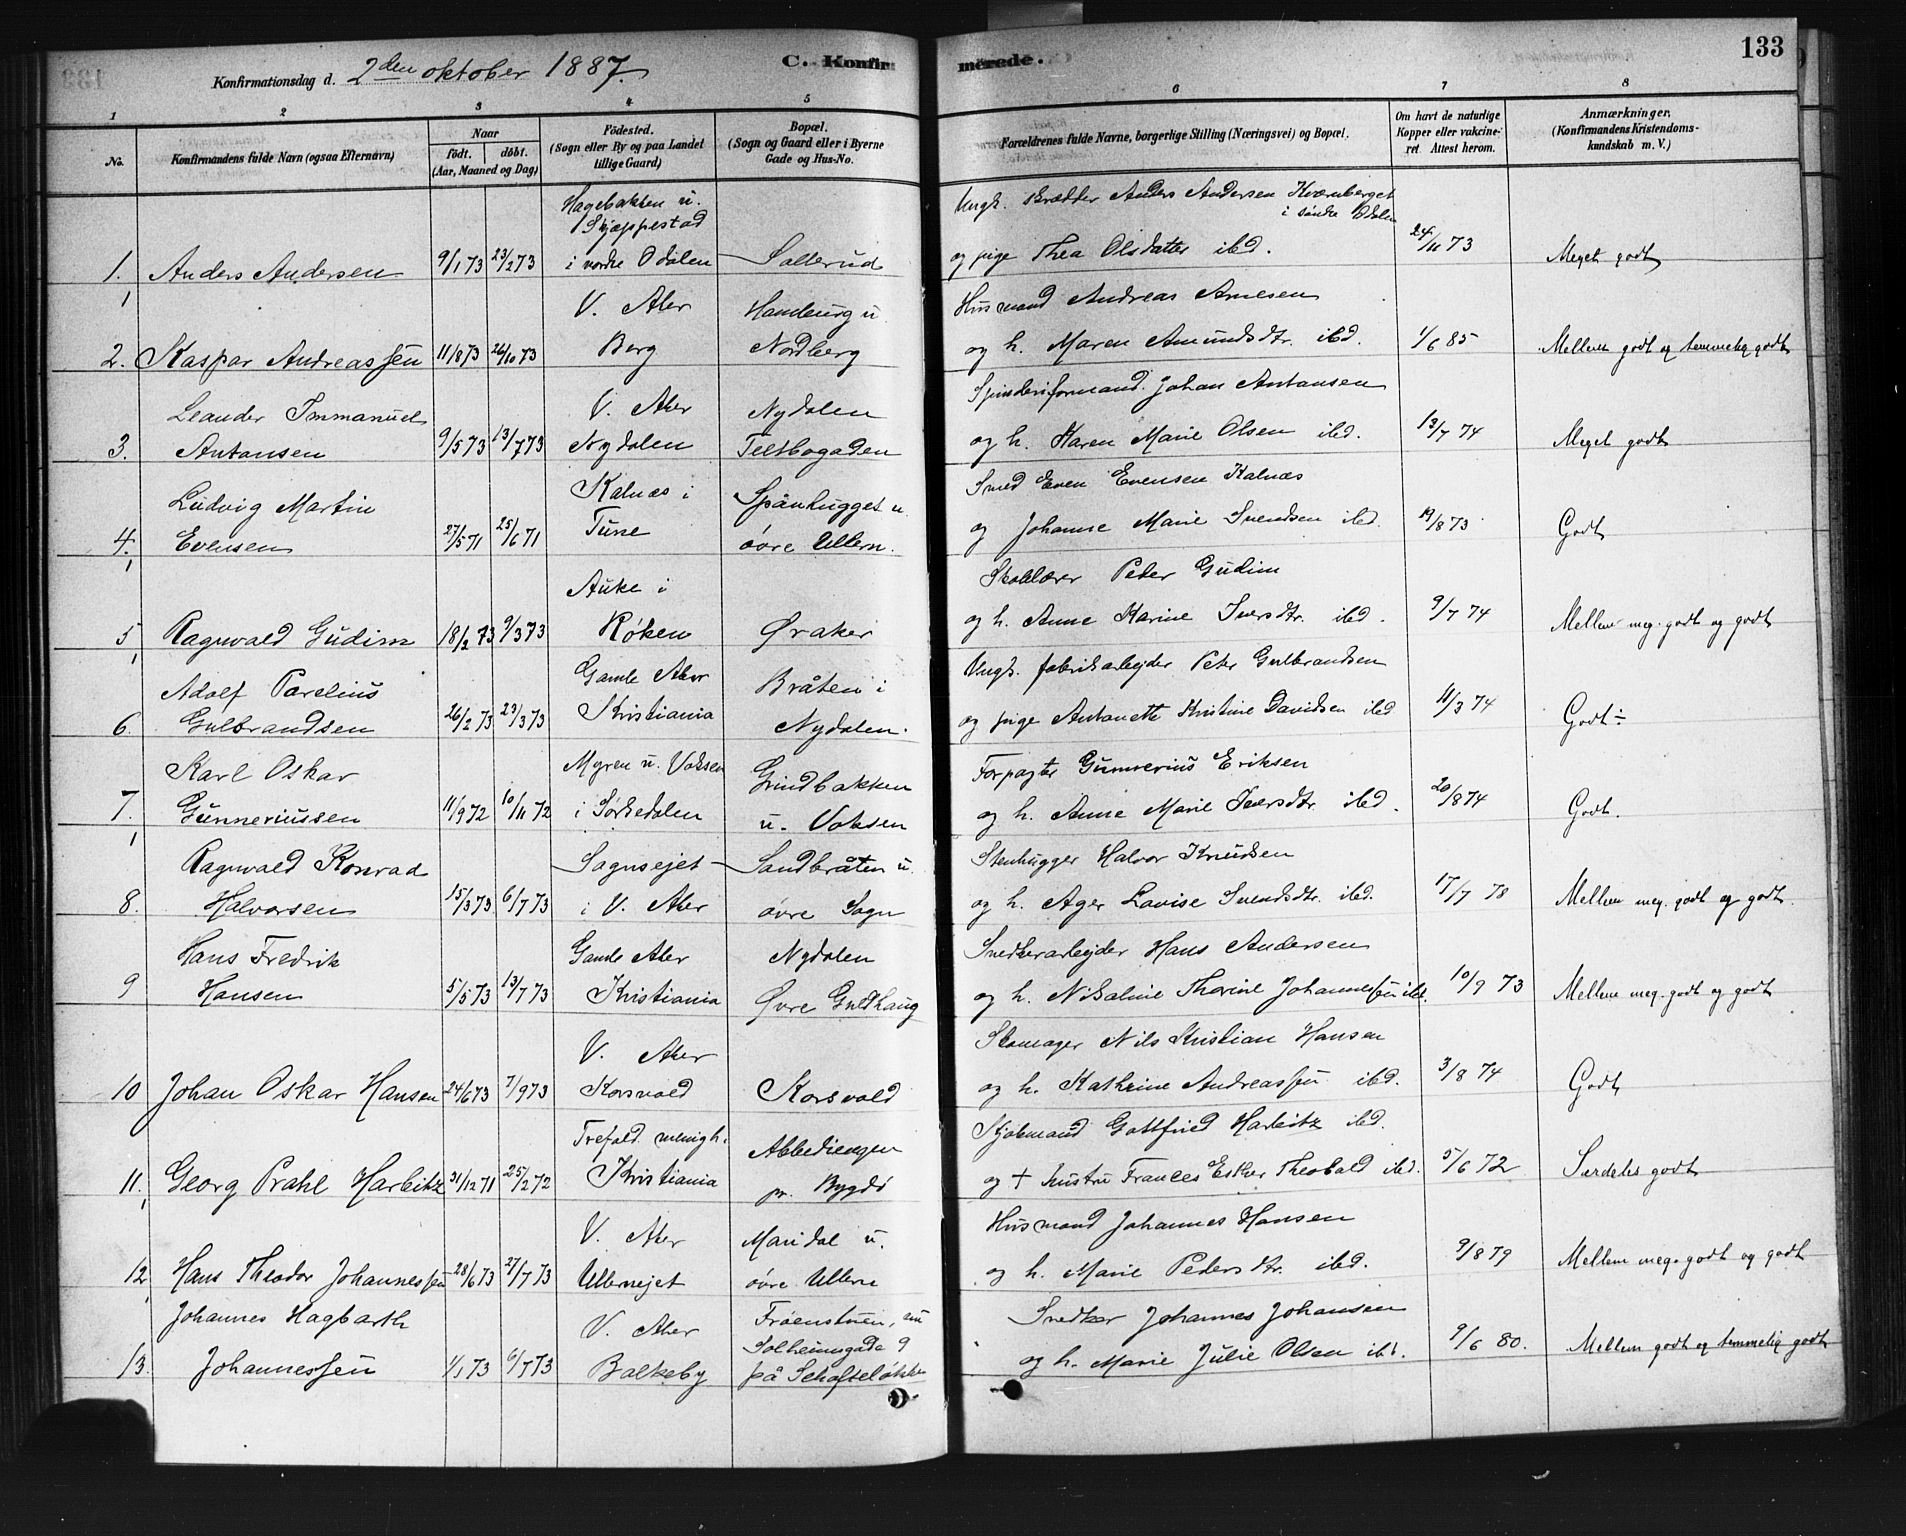 133
Konfirmationsdag d. 2den oktober 1887.
C. Konfirmerede.
1 2 3 4 5 6 7 8
No.
Konfirmandens fulde Navn (ogsaa Efternavn)
Naar
födt. döbt.
(Aar, Maaned og Dag)
Födested.
(Sogn eller By og paa Landet
tillige Gaard)
Bopæl.
(Sogn og Gaard eller i Byerne
Gade og Hus-No.
Forældrenes fulde Navne, borgerlige Stilling (Næringsvei) og Bopæl.
Om havt de naturlige
Kopper eller vakcine-
ret. Attest herom.
Anmærkninger.
(Konfirmandens Kristendoms-
kundskab m. V.)
Hagebakken u. Ungk. Anders Andersen Kværnberget
Skjæppestad i söndre Odalen
1. Anders Andersen 9/1 73 23/2 73 i nordre Odalen Sollerud og pige Thea Olsdatter ibd. 24/11 73 Meget godt
V. Aker Hamburg u. Husmand Andreas Arnesen
2. Kaspar Andreassen 11/8 73 26/10 73 Berg Nordberg og h. Maren Amundsdtr. ibd. 1/6 85 Mellem godt og temmelig godt
Leander Immanuel V. Aker Nydalen Spinderiformand Johan Antonsen
3. Antonsen 9/5 73 13/7 73 Nydalen Teltbogaden og h. Karen Marie Olsen ibd. 13/7 74 Meget godt
Ludvig Martin Kalnæs i Spånhugget u. Smed Even Evensen Kalnæs
4. Evensen 27/5 71 25/6 71 Tune övre Ullern. og Johanne Marie Svendsen ibd. 19/8 73 Godt
Auke i Skolelærer Peder Gudim
5 Ragnvald Gudim 18/2 73 9/3 73 Røken Øraker og h. Anne Karine Iversdtr. ibd. 9/7 74 Mellem meg. godt og godt
Adolf Parelius Gamle Aker Bråten i Ungk. fabrikarbejder Peter Gulbrandsen
6. Gulbrandsen 26/2 73 23/3 73 Kristiania Nydalen. og pige Antonette Kristine Davidsen ibd 11/3 74 Godt ÷
Karl Oskar Myren u. Voksen Grindbakken Forpagter Gunnerius Eriksen
7. Gunneriussen 11/9 72 10/11 72 i Sørkedalen u. Voksen og h. Anne Marie Iversdtr. ibd. 20/8 74 Godt.
Ragnvald Konrad Sognsejet Sandbråten u. Stenhugger Halvor Knudsen
8. Halvorsen 15/3 73 6/7 73 i V. Aker övre Sogn og h. Ager Lovise Svendsdtr. ibd. 17/7 78 Mellem meg. godt og godt.
Hans Fredrik Gamle Aker Nydalen Snedkerarbejder Hans Andersen
9 Hansen 5/5 73 13/7 73 Kristiania Øvre Guldhaug og h. Nikoline Thorine Johannessen ibd. 10/9 73 Mellem meg. godt og godt
V. Aker Skomager Nils Kristian Hansen
10 Johan Oskar Hansen 24/6 73 7/9 73 Korsvold Korsvold og h. Kathrine Andreassen ibd. 3/8 74 Godt
Trefold. menigh. Abbediengen Gottfried Harbitz ibd.
11. Georg Prahl Harbitz 31/12 71 25/2 72 Kristiania pr. Bygdö og + hustru Frances Esther Theobald ibd. 5/6 72 Særdeles godt
V. Aker Maridal u. Husmand Johannes Hansen
12 Hans Theodor Johannessen 28/6 73 27/7 73 Ullernejet övre Ullern og h. Marie Pedersdtr. ibd. 9/8 79 Mellem meg. godt og godt
Johannes Hagbarth V. Aker Frøenstuen, nu Snedker Johannes Johansen
Solheimsgade 9
13. Johannessen 1/1 73 6/7 73 Bolkeby på Schafteløkken og h. Marie Julie Olsen ibd. 9/6 80. Mellem godt og temmelig godt